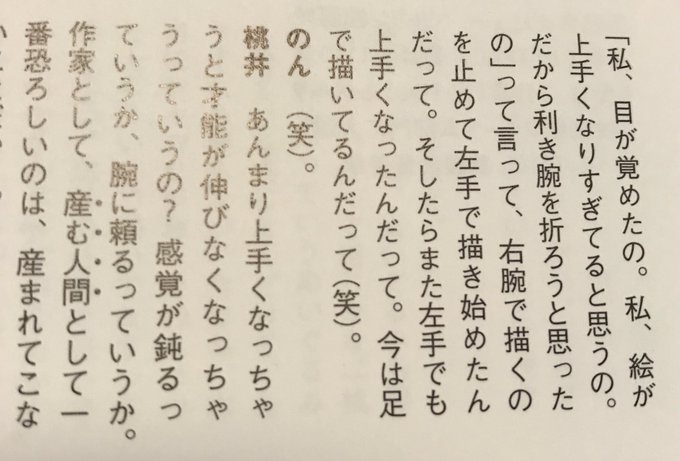 「私、目が覚めたの。私、絵が
上手くなりすぎてると思うの。
だから利き腕を折ろうと思った
の」って言って、右腕で描くの
を止めて左手で描き始めたん
だって。そしたらまた左手でも
上手くなったんだって。今は足
で描いてるんだって(笑)。
のん　(笑)。
桃井　あんまり上手くなっちゃ
うと才能が伸びなくなっちゃ
うっていうの？ 感覚が鈍るっ
ていうか、腕に頼るっていうか。
作家として、産む人間として一
番恐ろしいのは、産まれてこな